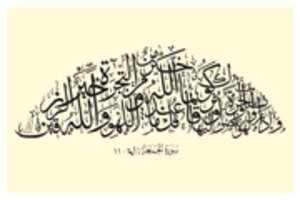 وإذا رأوا تجارة أو لهوا انفضوا إليها وتركوك قائما قل ما عند الله خير من اللهو ومن التجارة والله خير الرازقين
سورة الجمعة : آية ١١